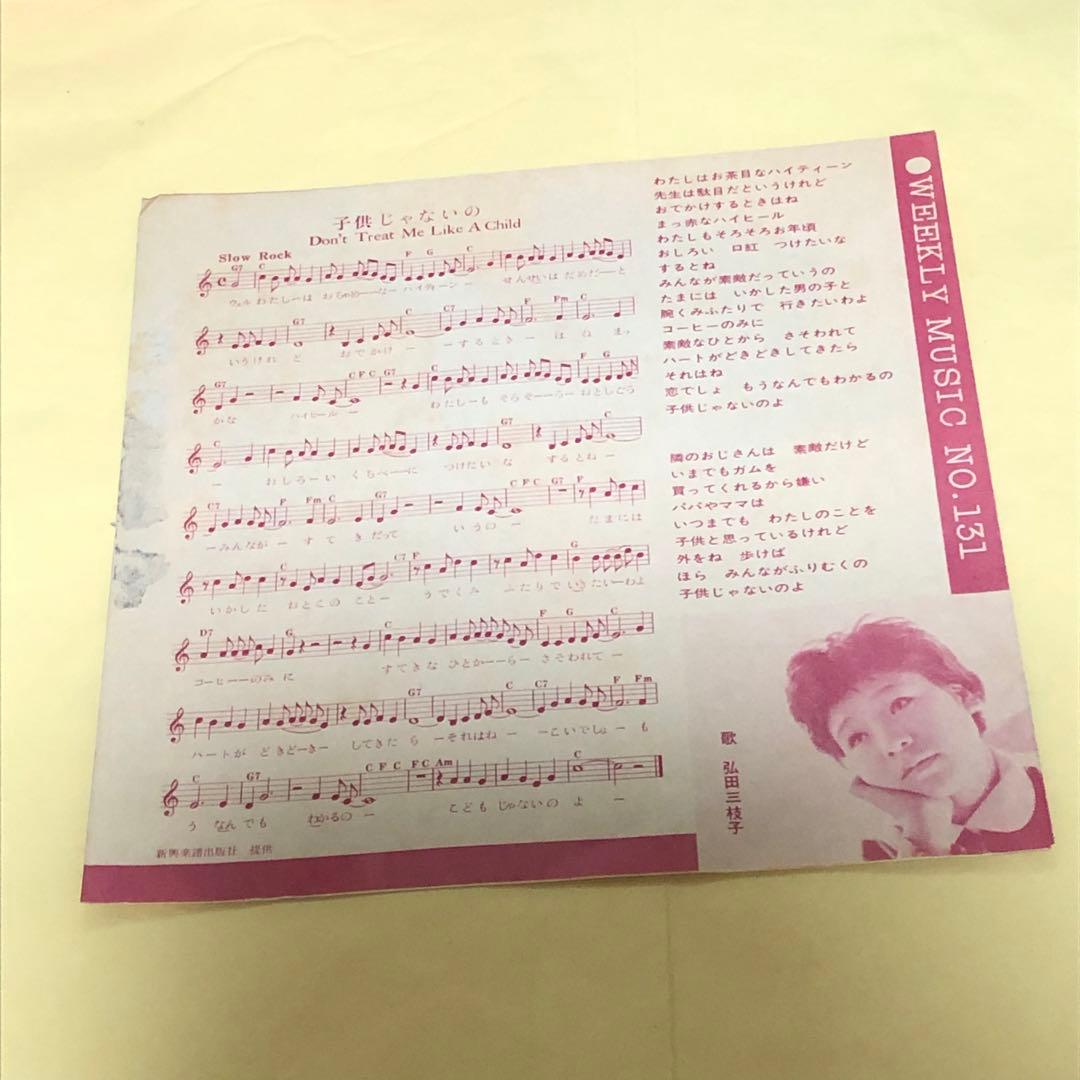 子供じゃないの
Don't Treat Me Like A Child
Slow Rock
G7 C F G C
ウェル わたしーは おちゃめーーなー ハイティーンー せんせいは だめだーーと
G7 C C7 F Fm C
いうけれ ど おでかけ ー ーするときー は ね まっ
G7 C F C G7 C F G
かな ハイヒールー わたしーも そろそーーろー おとしごろ
C G7 C
ー おしろーい くちべーーに つけたい な するとねー
C7 F Fm C G7 C F C G7 F
ーみんながー すて き だって いうのー たまには
C C7 F G
いかした おとこの ことー うでくみ ふたりで いきたいーわよ
D7 G C F G C
コーヒーーのみ に すてきな ひとかーーらー さそわれてー
G7 C C7 F Fm
ハートが どきどーきー してきた ら ーそれはねー ーこいでしょー も
C G7 C F C F C Am C
う なんでも わかるのー こども じゃないの よ ー
新興楽譜出版社 提供
わたしはお茶目なハイティーン
先生は駄目だというけれど
おでかけするときはね
まっ赤なハイヒール
わたしもそろそろお年頃
おしろい 口紅 つけたいな
するとね
みんなが素敵だっていうの
たまには いかした男の子と
腕くみふたりで 行きたいわよ
コーヒーのみに
素敵なひとから さそわれて
ハートがどきどきしてきたら
それはね
恋でしょ もうなんでもわかるの
子供じゃないのよ
隣のおじさんは 素敵だけど
いまでもガムを
買ってくれるから嫌い
パパやママは
いつまでも わたしのことを
子供と思っているけれど
外をね 歩けば
ほら みんながふりむくの
子供じゃないのよ
歌 弘田三枝子
●WEEKLY MUSIC NO.131